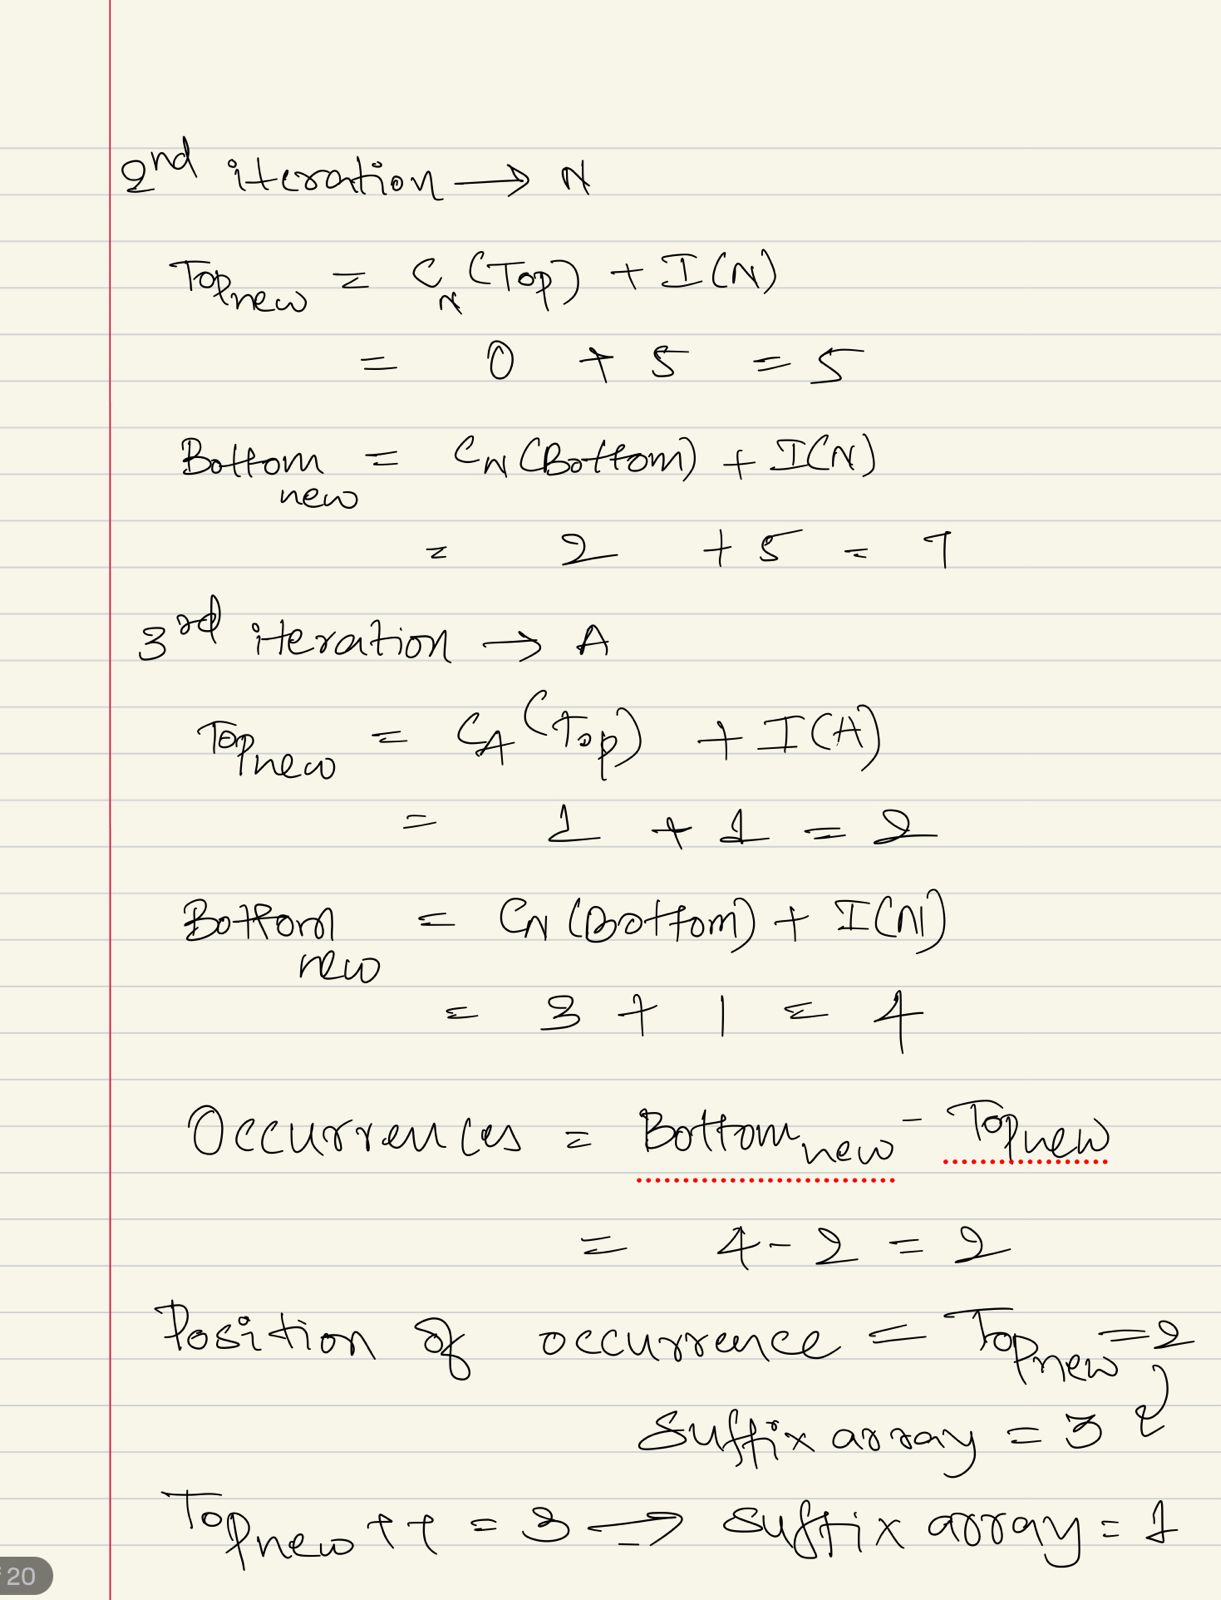 2nd iteration → N
Topnew = CN (Top) + I(N)
= 0 + 5 = 5
Bottom new = CN (Bottom) + I(N)
= 2 + 5 = 7
3rd iteration → A
Topnew = CA (Top) + I(A)
= 1 + 1 = 2
Bottom new = CN (Bottom) + I(N)
= 3 + 1 = 4
Occurrences = Bottomnew - Topnew
= 4 - 2 = 2
Position of occurrence = Topnew = 2,
Suffix array = 3
Topnew ++ = 3 → suffix array = 1
20